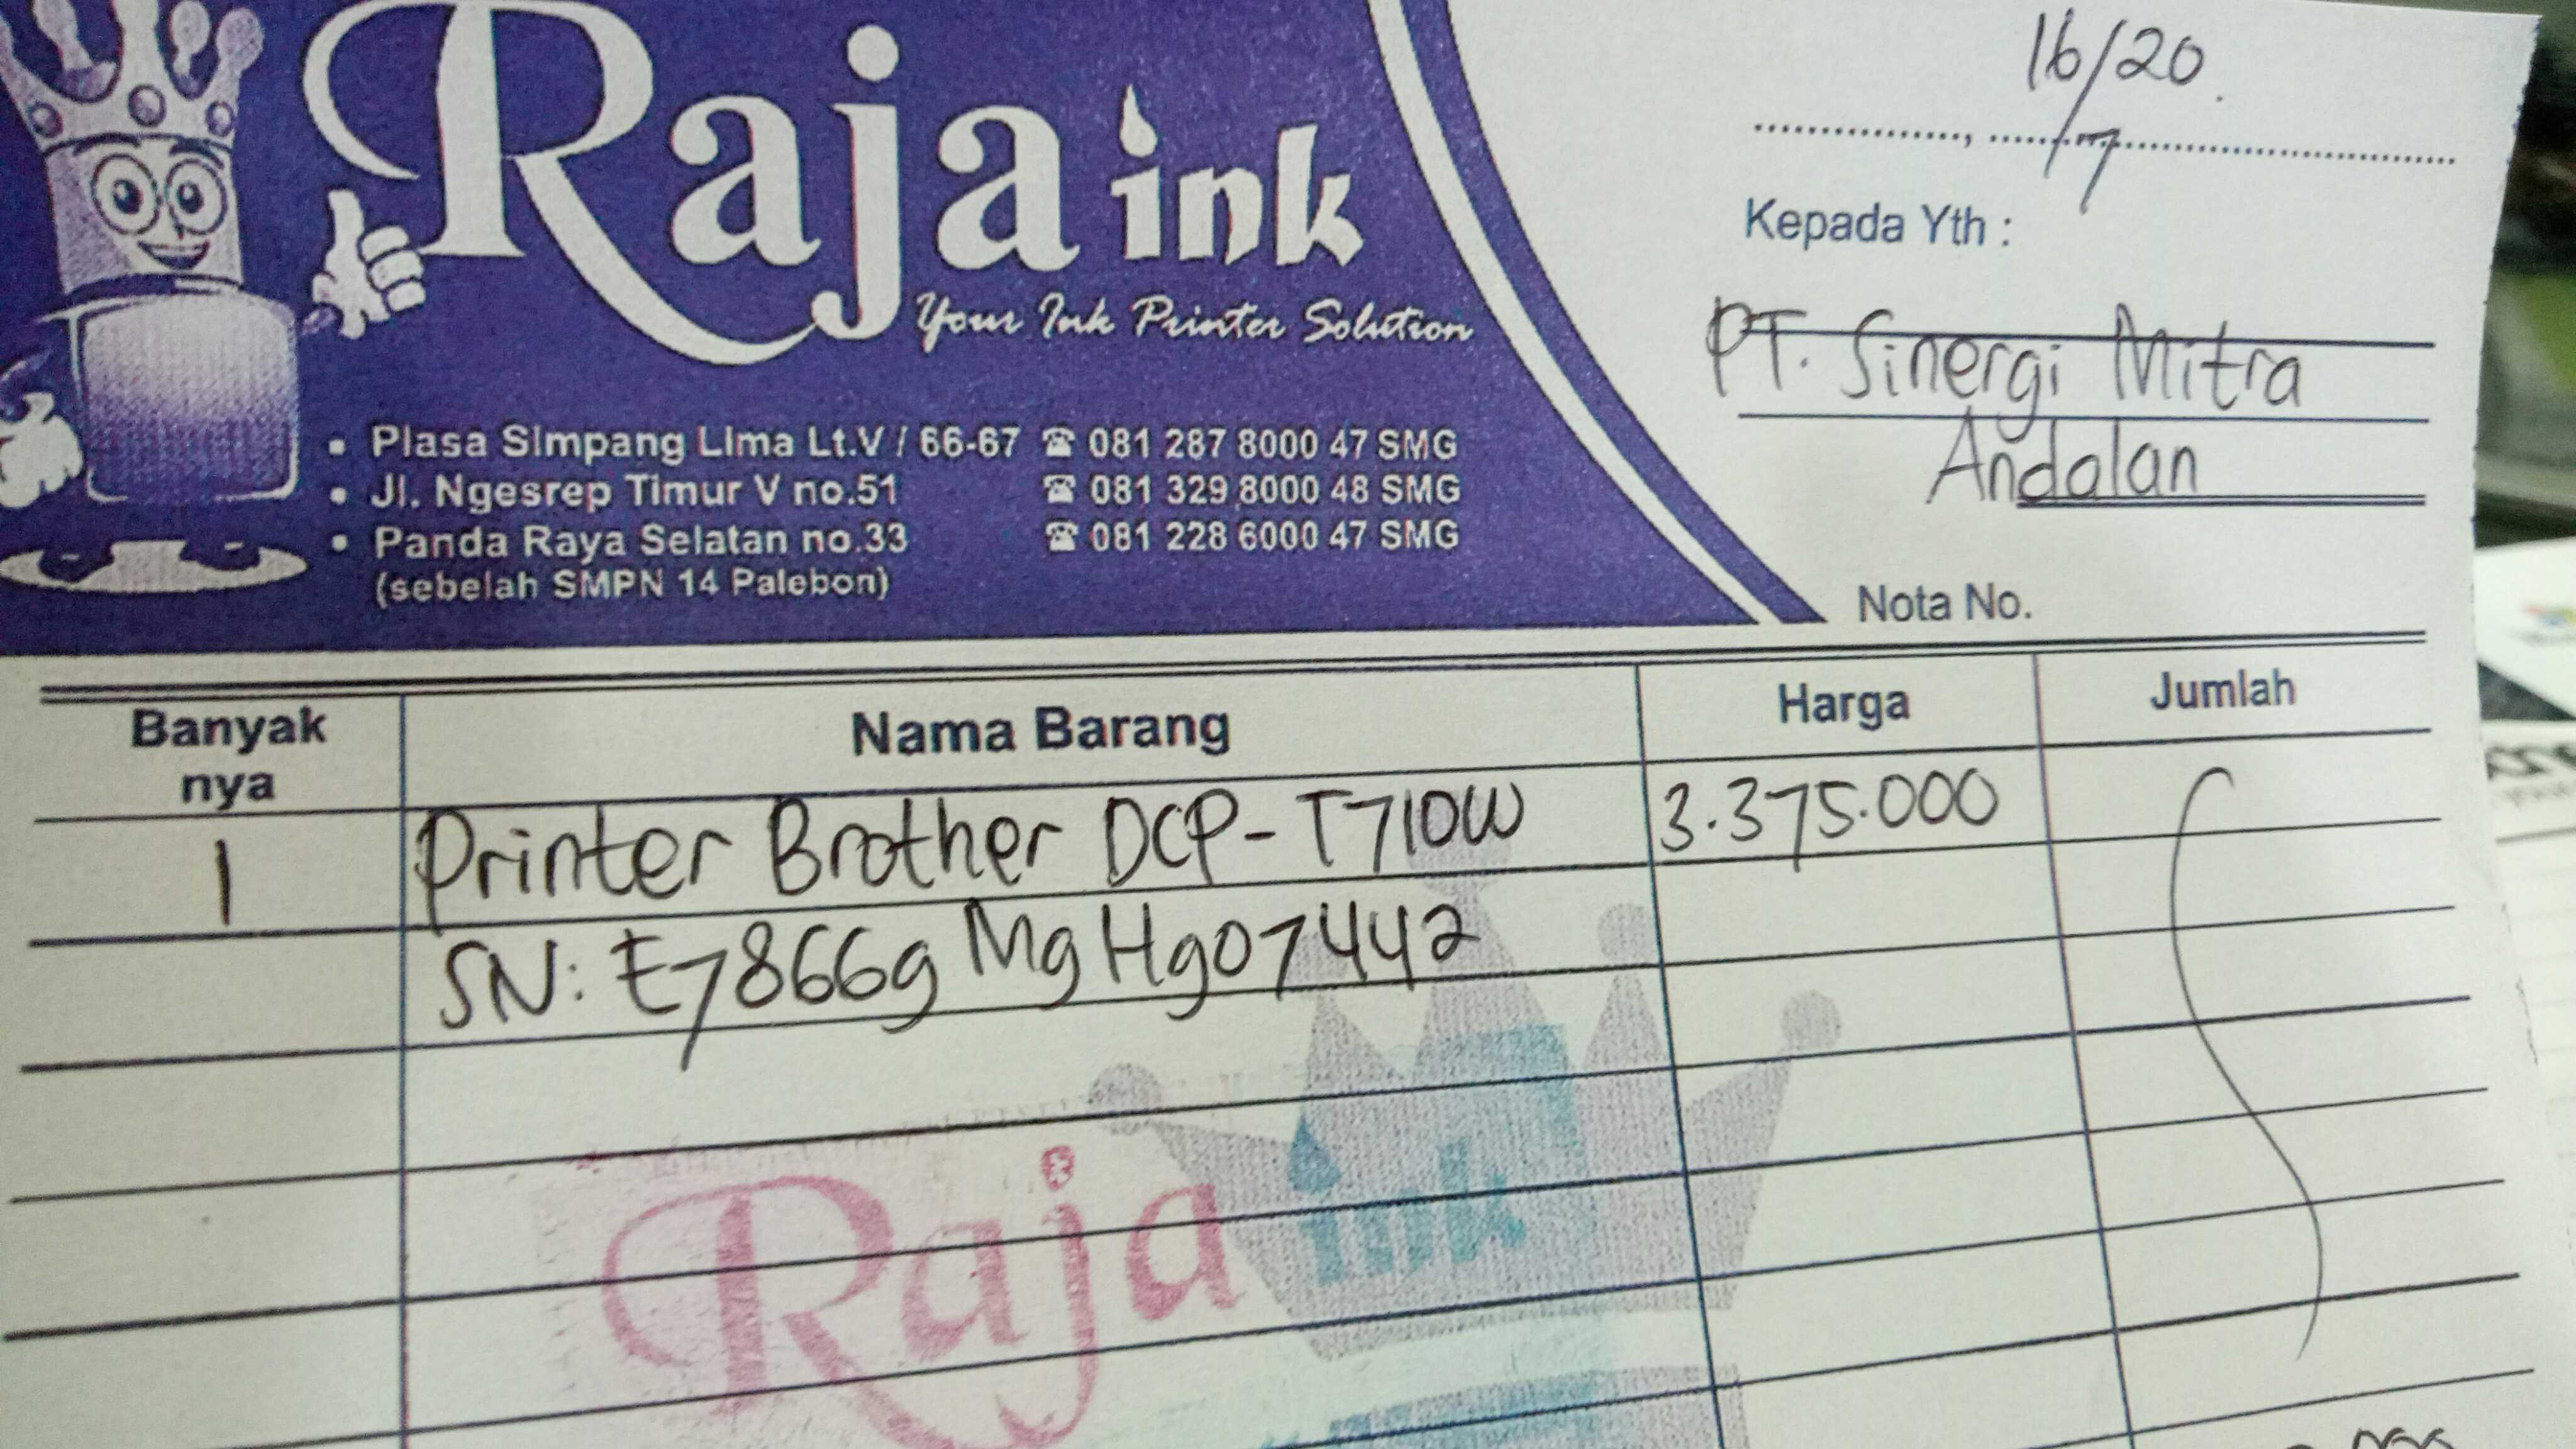 Raja ink
Your Ink Printer Solution
• Plasa Simpang Lima Lt.V / 66-67 ☎ 081 287 8000 47 SMG
• Jl. Ngesrep Timur V no.51 ☎ 081 329 8000 48 SMG
• Panda Raya Selatan no.33 ☎ 081 228 6000 47 SMG
(sebelah SMPN 14 Palebon)
16/7 20.
Kepada Yth :
PT. Sinergi Mitra
Andalan
Nota No.
Banyak nya Nama Barang Harga Jumlah
1 Printer Brother DCP-T710W 3.375.000
SN: E78669MgHg07442
Raja ink